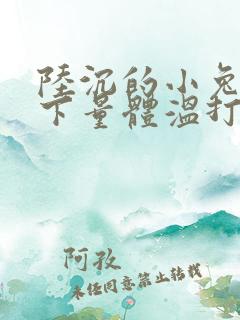 陸沉的小兔
下量體溫打
阿孜
未經同意禁止轉載